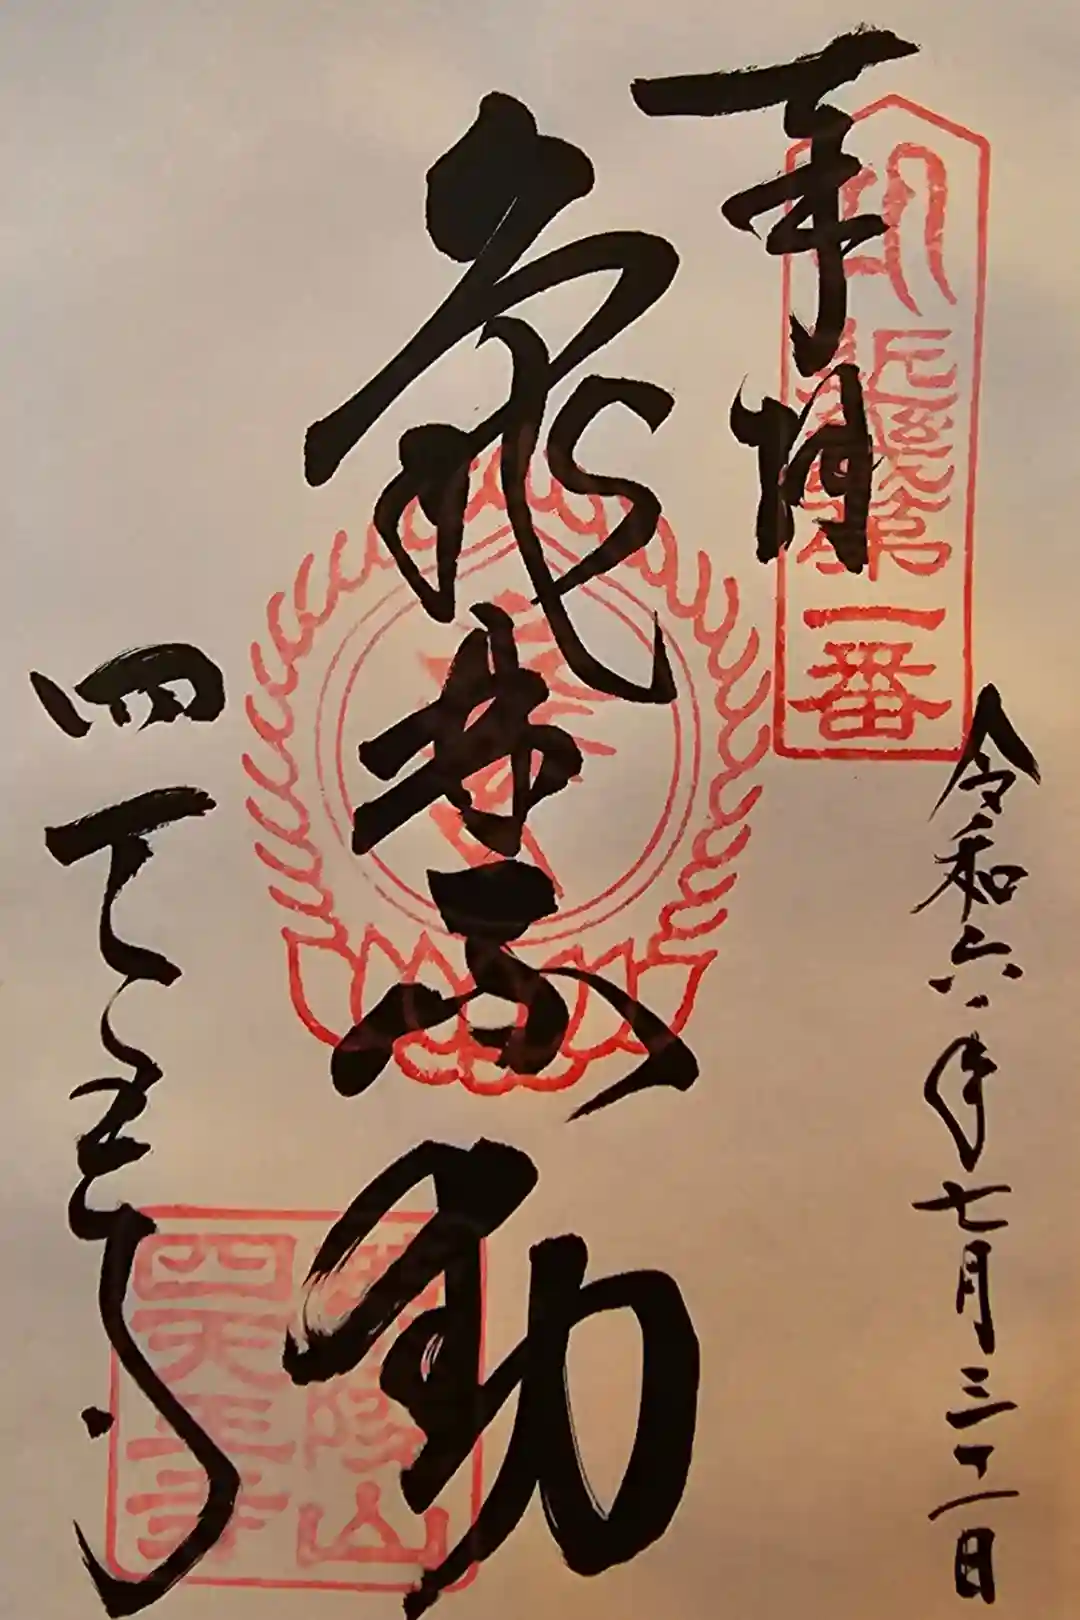 奉拝
第一番
令和六年七月三十一日
亀井不動
四天王寺
荒陵山
四天王寺